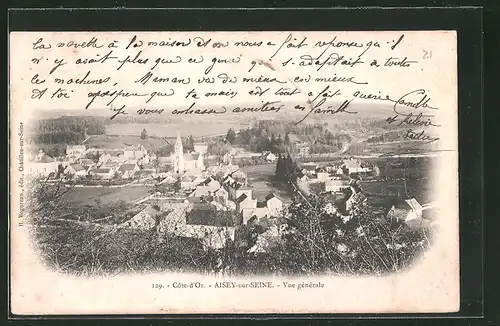 la navette à la maison et on nous a fait reponse qu'il
n'y avait plus que ce genre qui s'adaptait à toute
les machines. Maman va de mieux en mieux
Et toi j'espère que ta main est tout à fait guérie
Je vous embrasse amitiés en famille
Camille
et Helène
21
H. Rogereau, édit., Châtillon-sur-Seine
129. - Côte-d'Or. - AISEY-sur-SEINE. - Vue générale